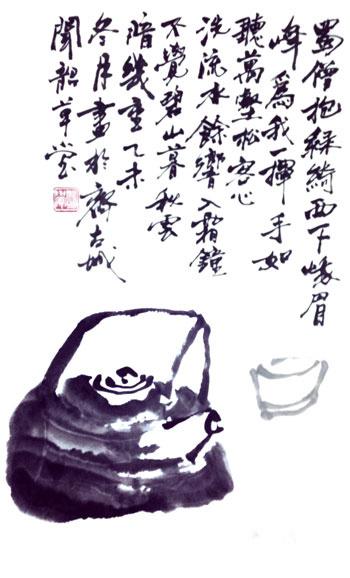 蜀僧抱綠綺西下峨眉
峰爲我一揮手如
聽萬壑松客心
洗流水餘響入霜鐘
不覺碧山暮秋雲
暗幾重乙未
冬月畫於齊古城
聞韶草堂